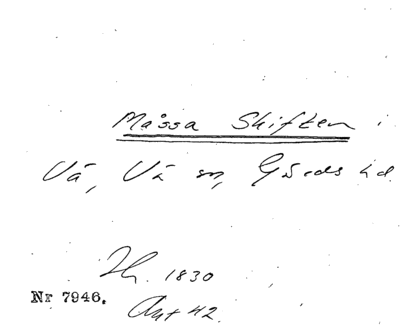 Måssa Skiften i
Vä, Vä sn, Gärds hd.
Th. 1830
Nr 7946.
Ant 42.